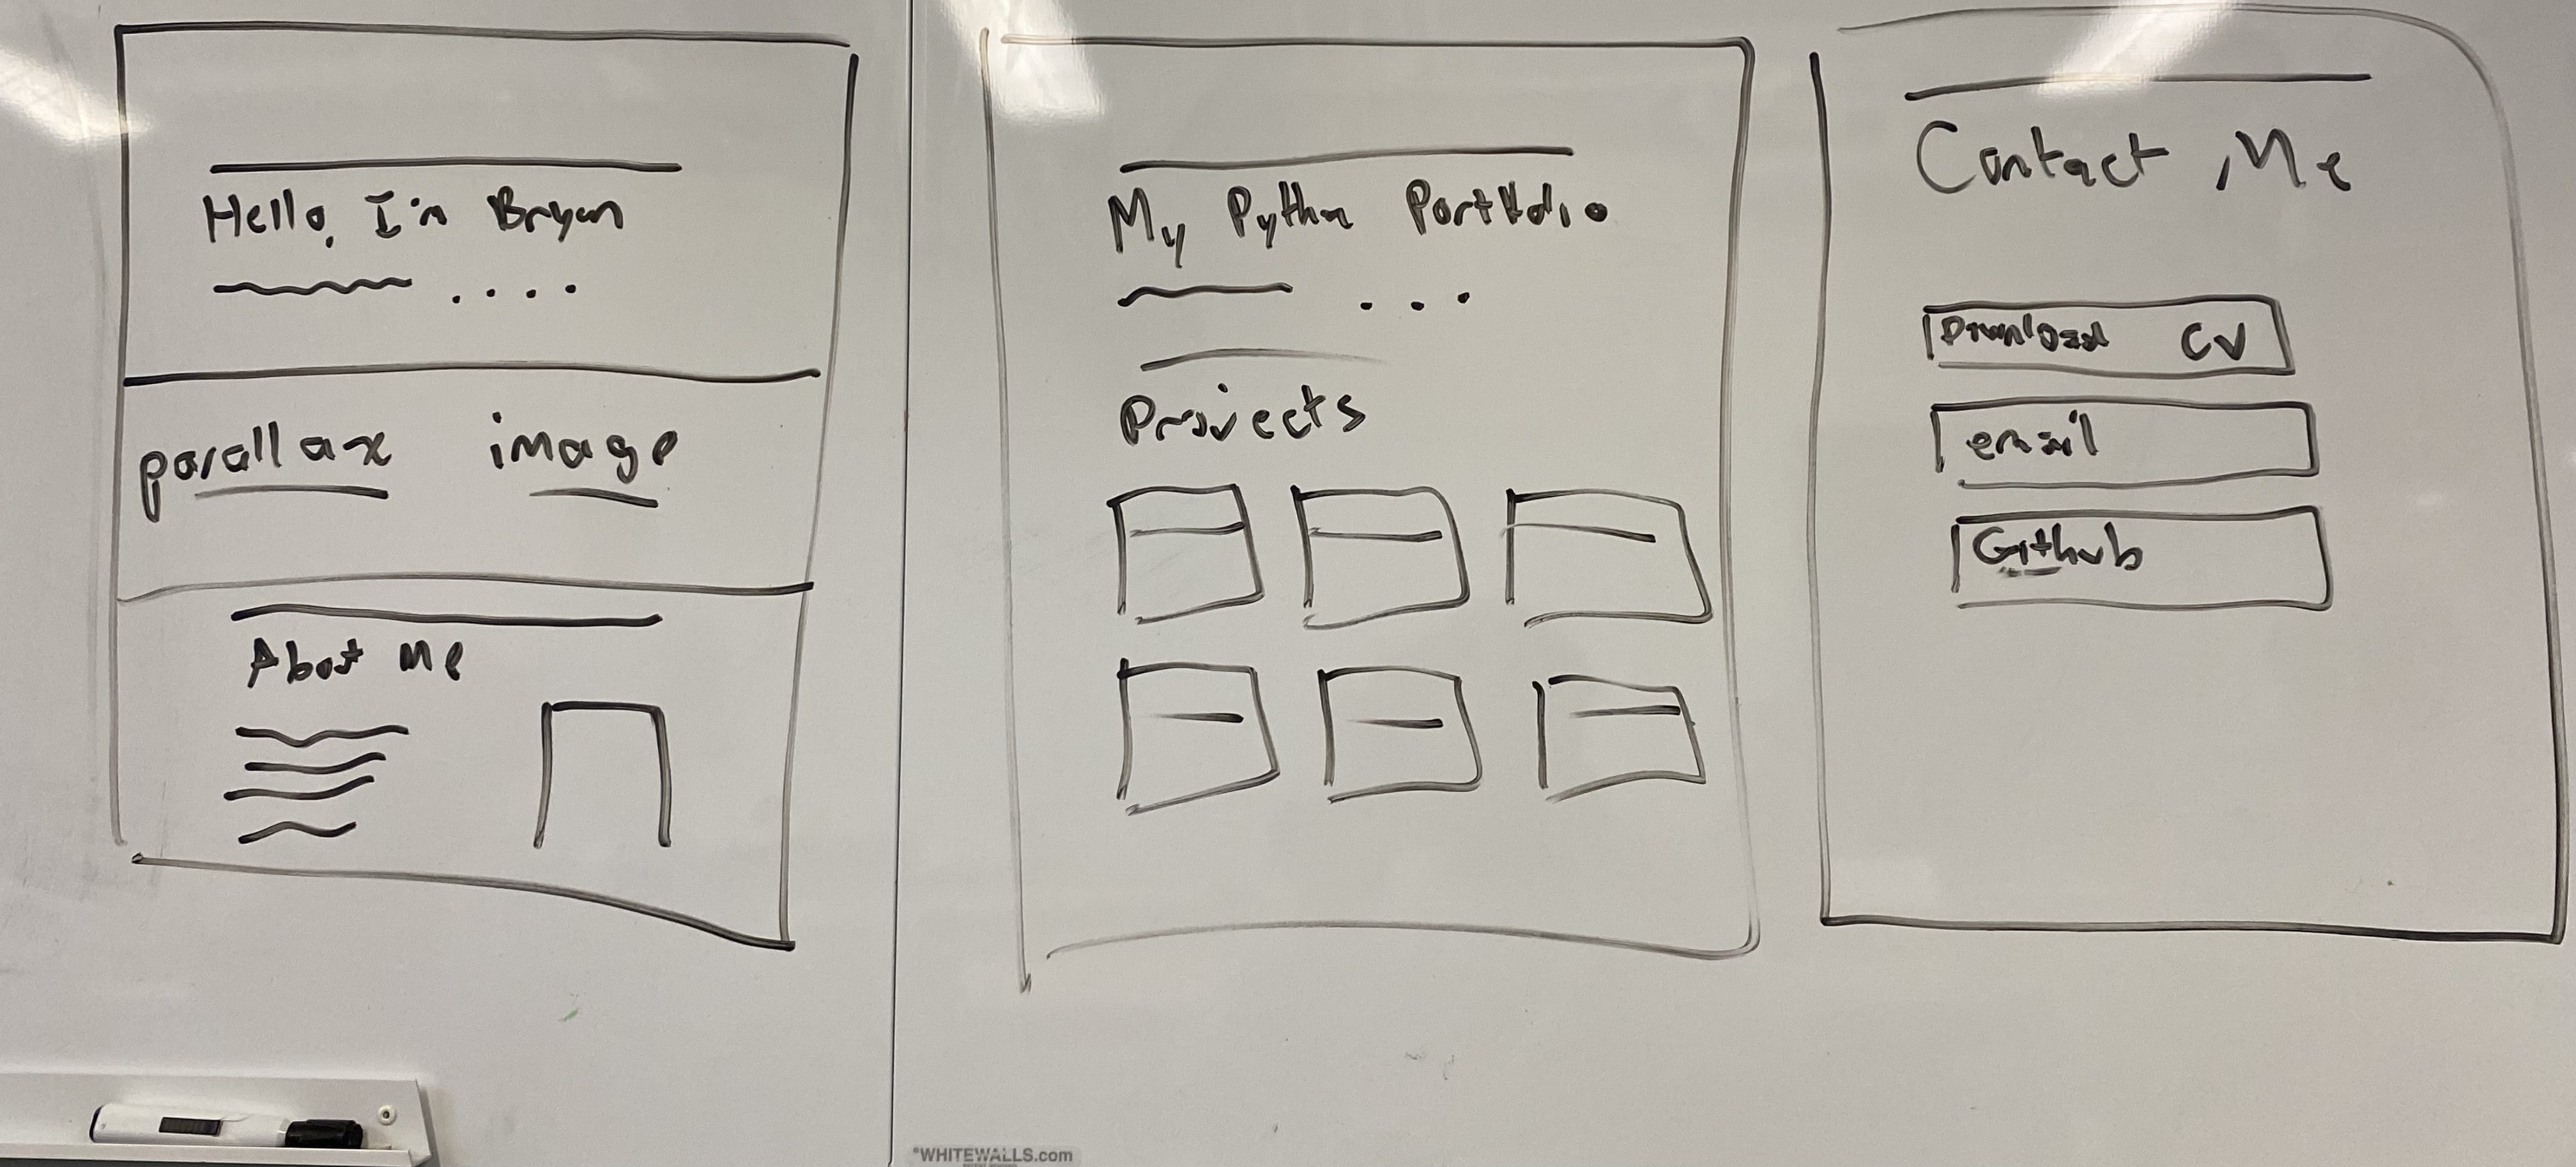 Hello, I'm Bryan
parallax image
About Me
My Python Portfolio
Projects
Contact Me
Download CV
email
Github
WHITEWALLS.com